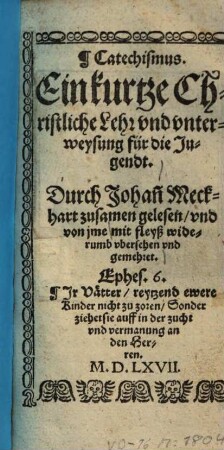 ¶ Catechismus.
Ein kurtze Ch-
ristliche Lehr vnd vnter-
weysung für die Ju-
gendt.
Durch Johañ Meck-
hart zusamen gelesen / vnd
von jme mit fleyß wide-
rumb vbersehen vnd
gemehret.
Ephes. 6.
¶ Ir Vätter / reytzend ewere
Kinder nicht zu zoren / Sonder
ziehet sie auff in der zucht
vnd vermanung an
den Her-
ren.
M. D. LXVII.